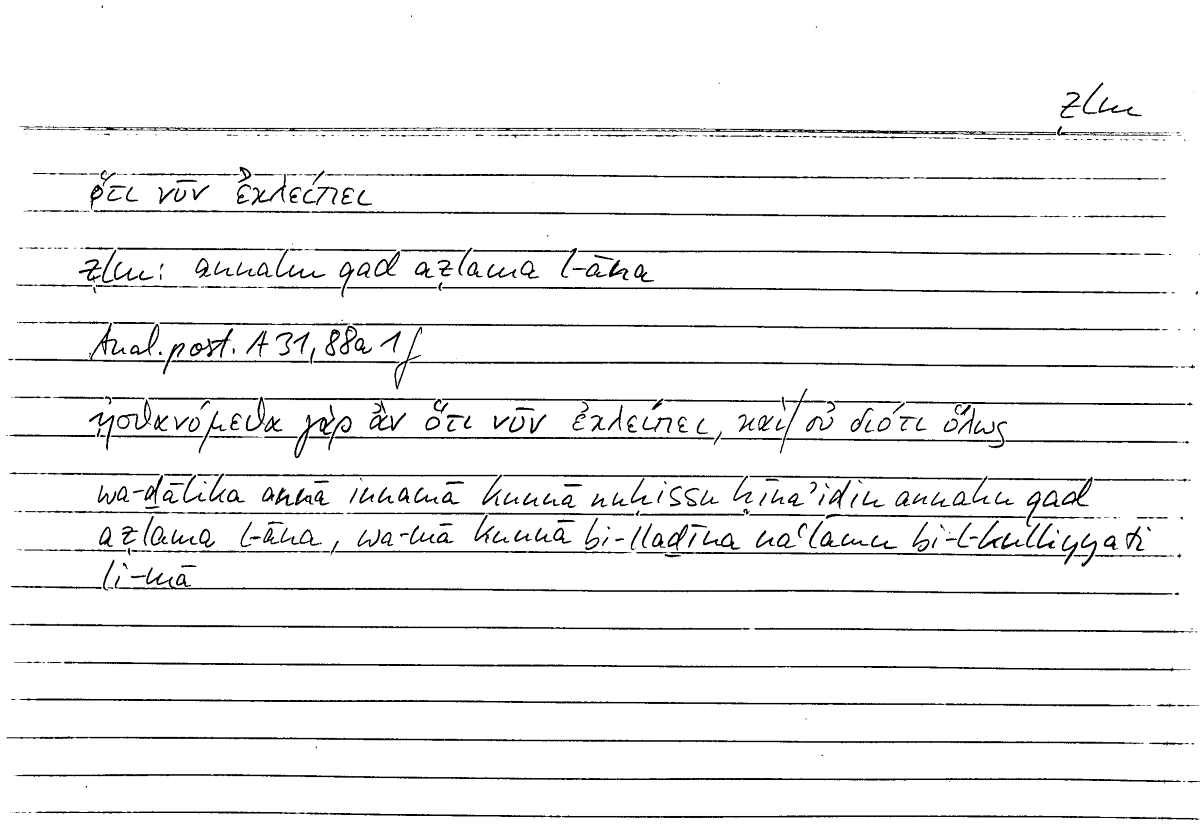 ẓlm
ὅτι νῦν ἐκλείπει
ẓlm: annahu qad aẓlama l-āna
Anal. post. A 31, 88a 1 f
ᾐσθανόμεθα γὰρ ἂν ὅτι νῦν ἐκλείπει, καὶ/οὐ διότι ὅλως
wa-ḏālika annā innamā kunnā nuḥissu ḥīna'iḏin annahu qad
aẓlama l-āna, wa-mā kunnā bi-llaḏīna na‘lamu bi-l-kulliyyati
li-mā